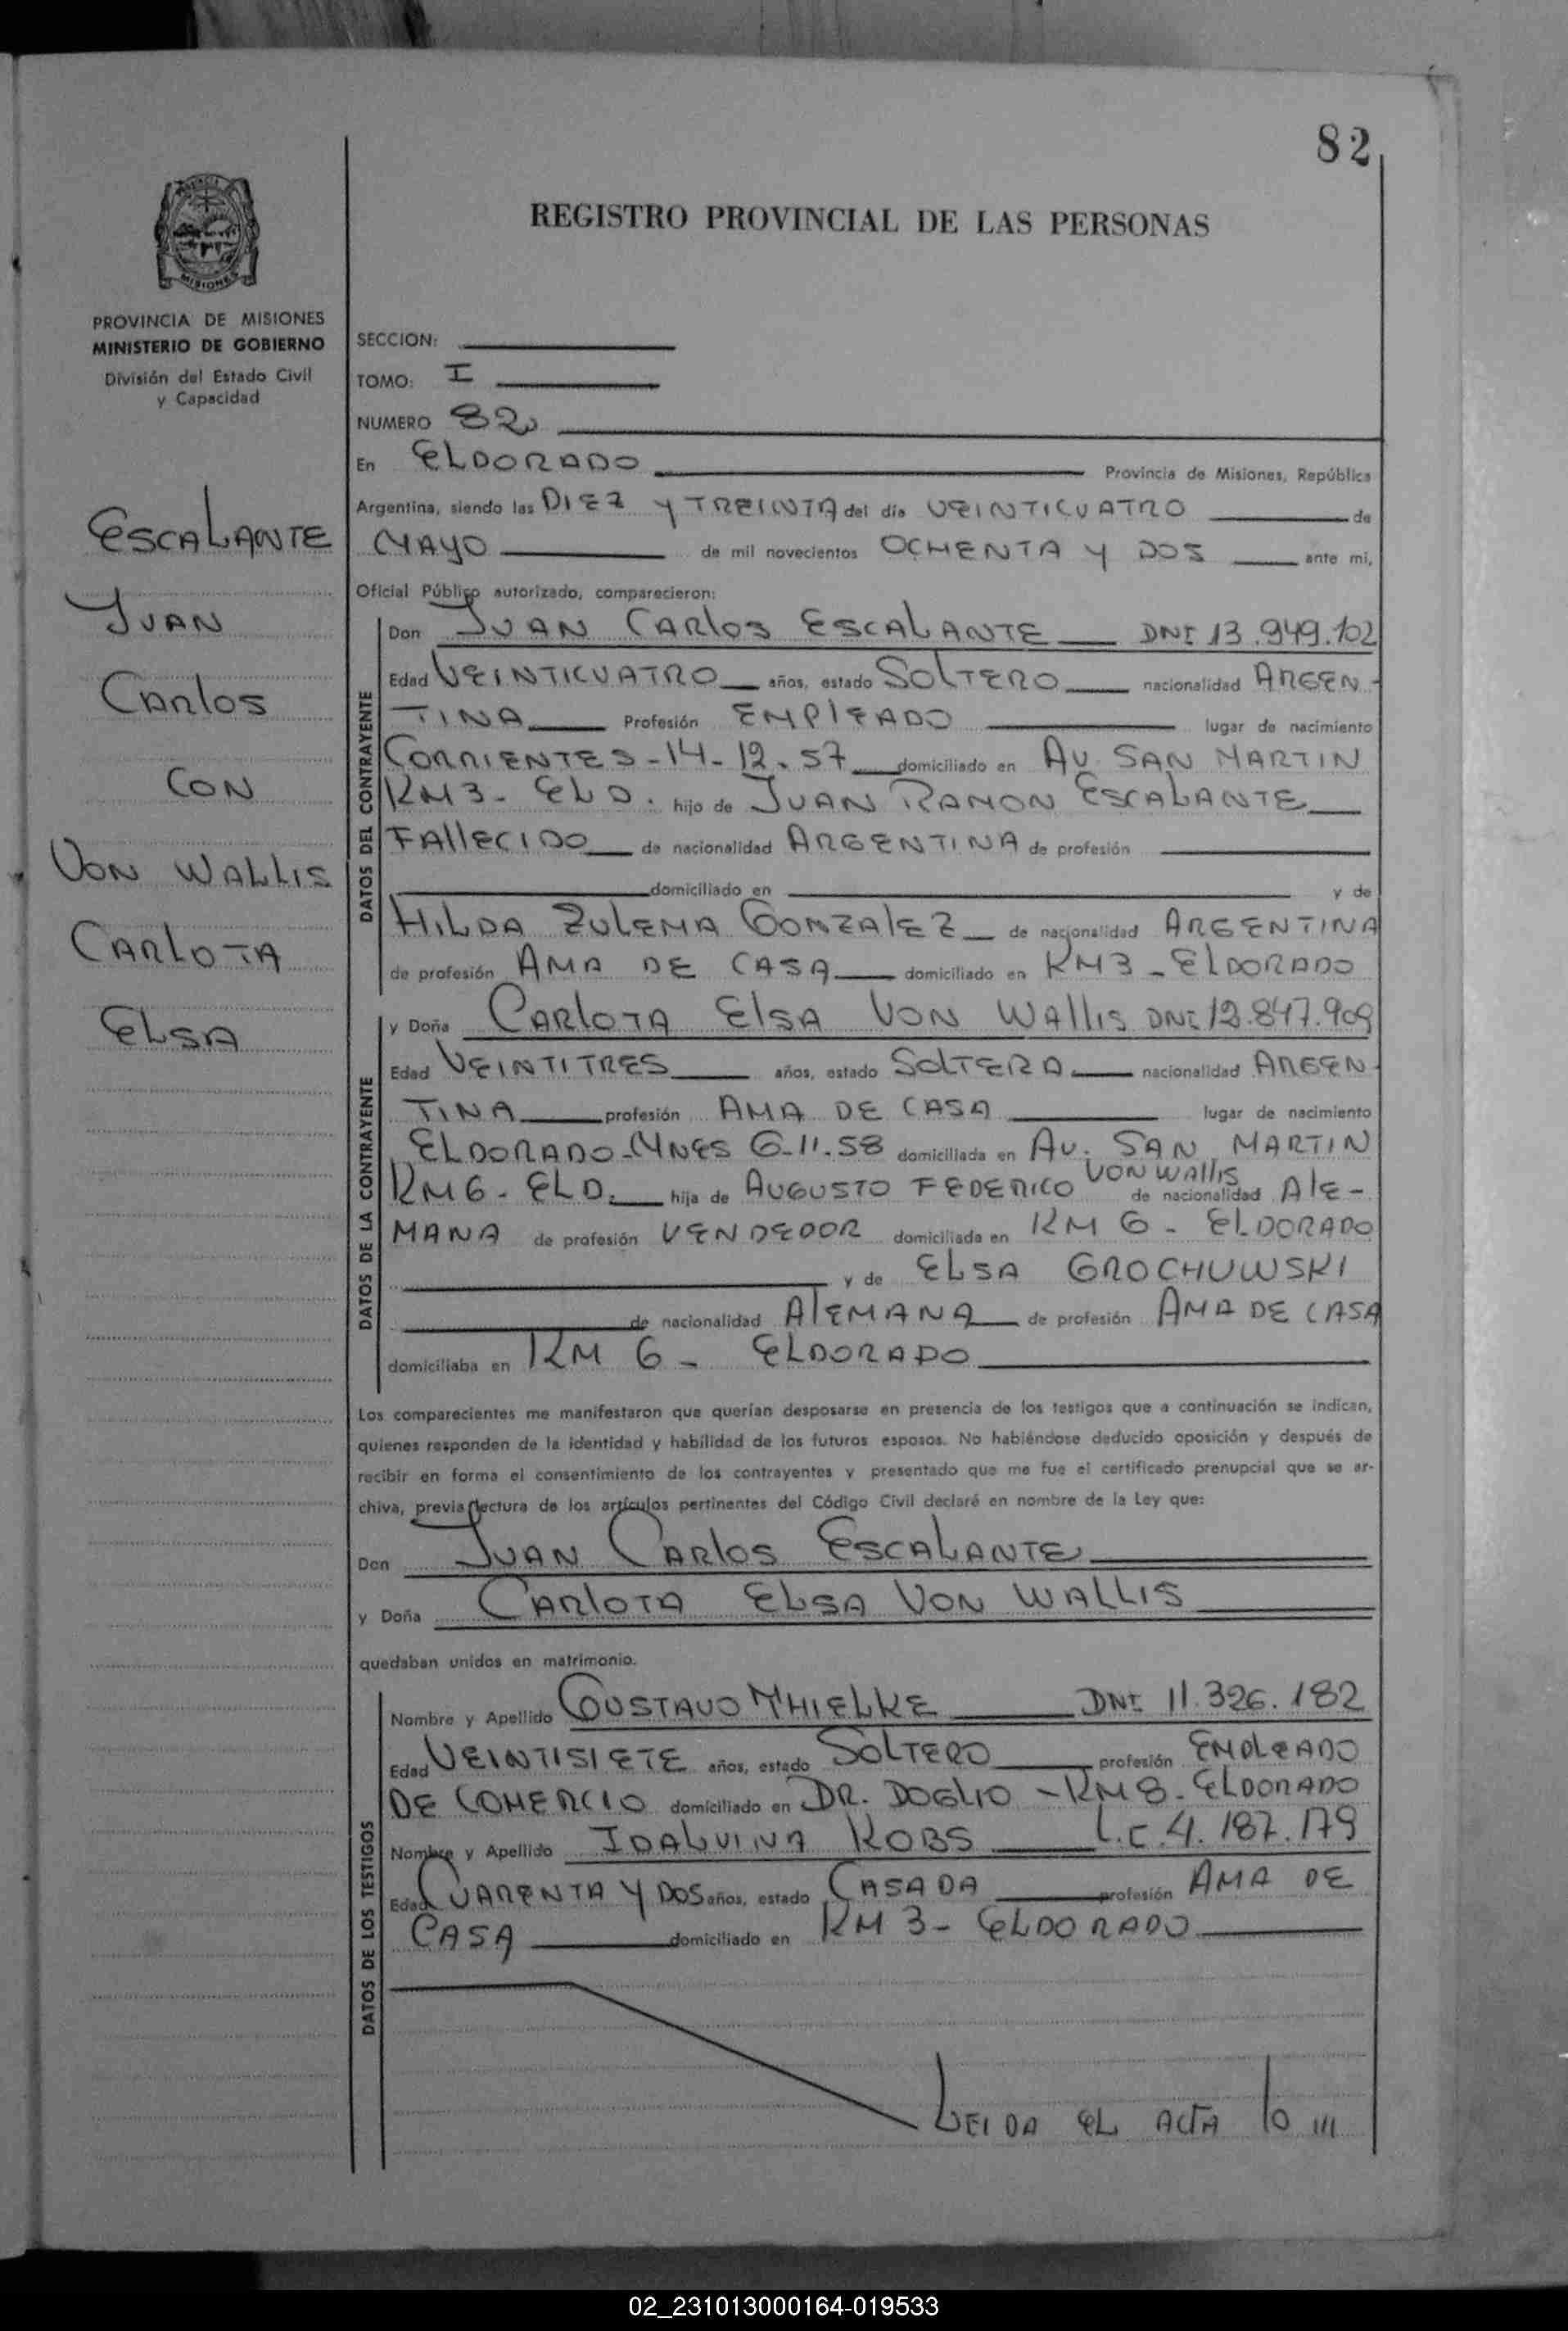 82
REGISTRO PROVINCIAL DE LAS PERSONAS
MISIONES
PROVINCIA DE MISIONES
MINISTERIO DE GOBIERNO
División del Estado Civil
y Capacidad
ESCALANTE
JUAN
CARLOS
CON
VON WALLIS
CARLOTA
ELSA
SECCION:
TOMO: I
NUMERO 82
En ELDORADO Provincia de Misiones, República
Argentina, siendo las DIEZ Y TREINTA del día VEINTICUATRO de
MAYO de mil novecientos OCHENTA Y DOS ante mi,
Oficial Público autorizado, comparecieron:
DATOS DEL CONTRAYENTE
Don JUAN CARLOS ESCALANTE DNI 13.949.102
Edad VEINTICUATRO años, estado SOLTERO nacionalidad ARGEN-
TINA Profesión EMPLEADO lugar de nacimiento
CORRIENTES-14-12-57 domiciliado en AV. SAN MARTIN
KM3- ELD. hijo de JUAN RAMON ESCALANTE
FALLECIDO de nacionalidad ARGENTINA de profesión
domiciliado en y de
HILDA ZULEMA GONZALEZ de nacionalidad ARGENTINA
de profesión AMA DE CASA domiciliado en KM3-ELDORADO
DATOS DE LA CONTRAYENTE
y Doña CARLOTA ELSA VON WALLIS DNI 12.847.909
Edad VEINTITRES años, estado SOLTERA nacionalidad ARGEN-
TINA profesión AMA DE CASA lugar de nacimiento
ELDORADO-MNES 6-11-58 domiciliada en AV. SAN MARTIN
KM6- ELD. hija de AUGUSTO FEDERICO VON WALLIS de nacionalidad ALE-
MANA de profesión VENDEDOR domiciliada en KM 6 - ELDORADO
y de ELSA GROCHUWSKI
de nacionalidad ALEMANA de profesión AMA DE CASA
domiciliaba en KM 6 - ELDORADO
Los comparecientes me manifestaron que querían desposarse en presencia de los testigos que a continuación se indican,
quienes responden de la identidad y habilidad de los futuros esposos. No habiéndose deducido oposición y después de
recibir en forma el consentimiento de los contrayentes y presentado que me fue el certificado prenupcial que se ar-
chiva, previa lectura de los artículos pertinentes del Código Civil declaré en nombre de la Ley que:
Don JUAN CARLOS ESCALANTE
y Doña CARLOTA ELSA VON WALLIS
quedaban unidos en matrimonio.
DATOS DE LOS TESTIGOS
Nombre y Apellido GUSTAVO THIELKE DNI 11.326.182
Edad VEINTISIETE años, estado SOLTERO profesión EMPLEADO
DE COMERCIO domiciliado en DR. DOGLIO -KM8- ELDORADO
Nombre y Apellido IDALVINA KOBS L.C 4.187.179
Edad CUARENTA Y DOS años, estado CASADA profesión AMA DE
CASA domiciliado en KM 3- ELDORADO
LEIDA EL ACTA LO ///
02_231013000164-019533